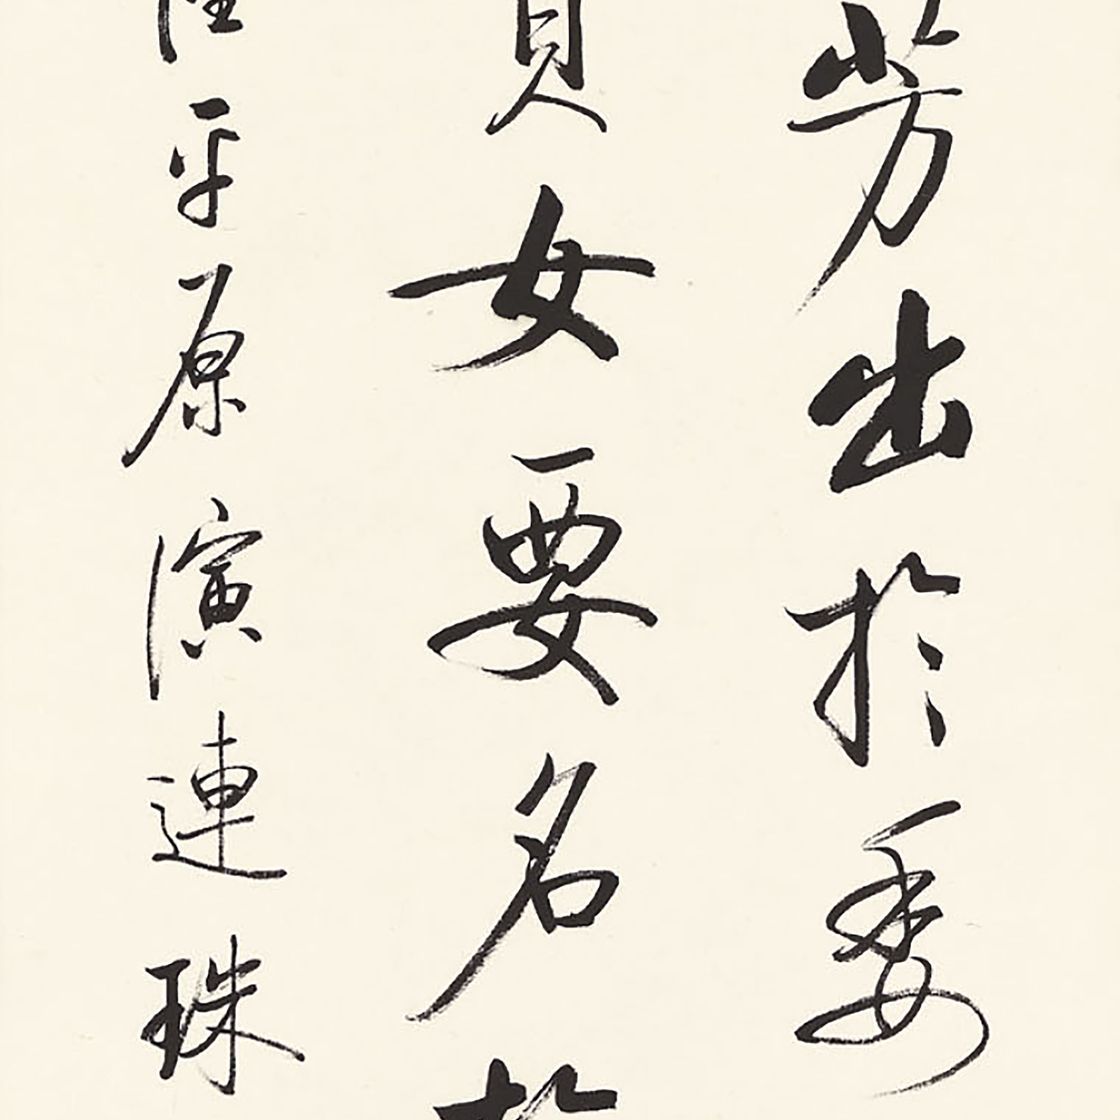 芳出於委
貞女要名於
陸平原演連珠